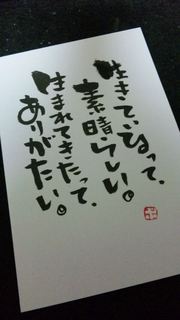 生きているって、
素晴らしい。
生まれてきたって、
ありがたい。